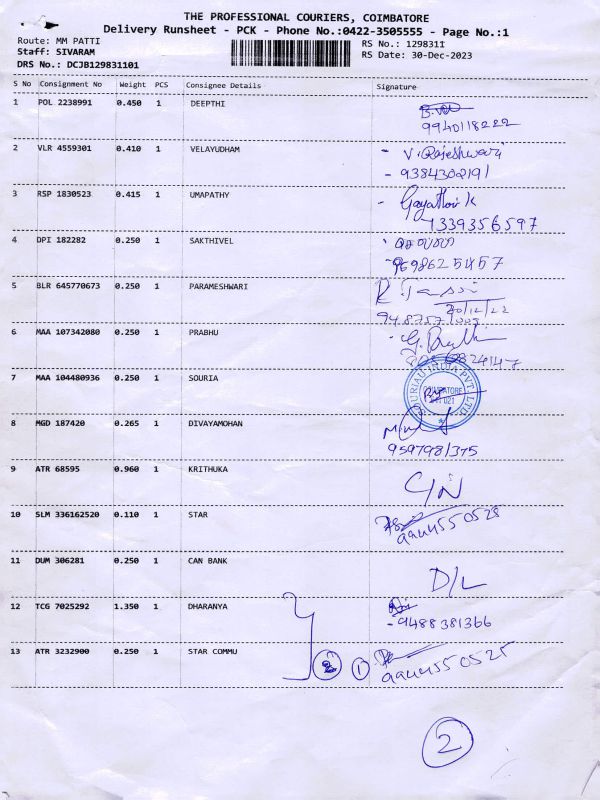 THE PROFESSIONAL COURIERS, COIMBATORE
Delivery Runsheet - PCK - Phone No.:0422-3505555 - Page No.:1
Route: MM PATTI
RS No.: 1298311
Staff: SIVARAM
RS Date: 30-Dec-2023
DRS No.: DCJB129831101
S No Consignment No Weight PCS Consignee Details Signature
1 POL 2238991 0.450 1 DEEPTHI
9940118222
2 VLR 4559301 0.410 1 VELAYUDHAM - V.Rajeshwari
- 9384302191
3 RSP 1830523 0.415 1 UMAPATHY - Gayathri K
7339356597
4 DPI 182282 0.250 1 SAKTHIVEL
9698625457
5 BLR 645770673 0.250 1 PARAMESHWARI
6 MAA 107342080 0.250 1 PRABHU
7 MAA 104480936 0.250 1 SOURIA
SOURIAU INDIA PVT. LTD.
8 MGD 187420 0.265 1 DIVAYAMOHAN
9597981375
9 ATR 68595 0.960 1 KRITHUKA C/N
10 SLM 336162520 0.110 1 STAR
9944550525
11 DUM 306281 0.250 1 CAN BANK D/L
12 TCG 7025292 1.350 1 DHARANYA
- 9488381366
13 ATR 3232900 0.250 1 STAR COMMU 2 1
9944550525
2